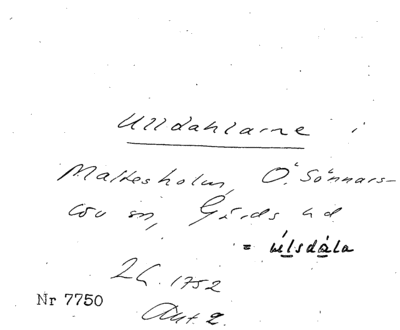 Ulldahlarne i
Maltesholm, Ö. Sönnars-
löv sn, Gärds hd
= úlsdála
LC. 1752
Akt. 2.
Nr 7750